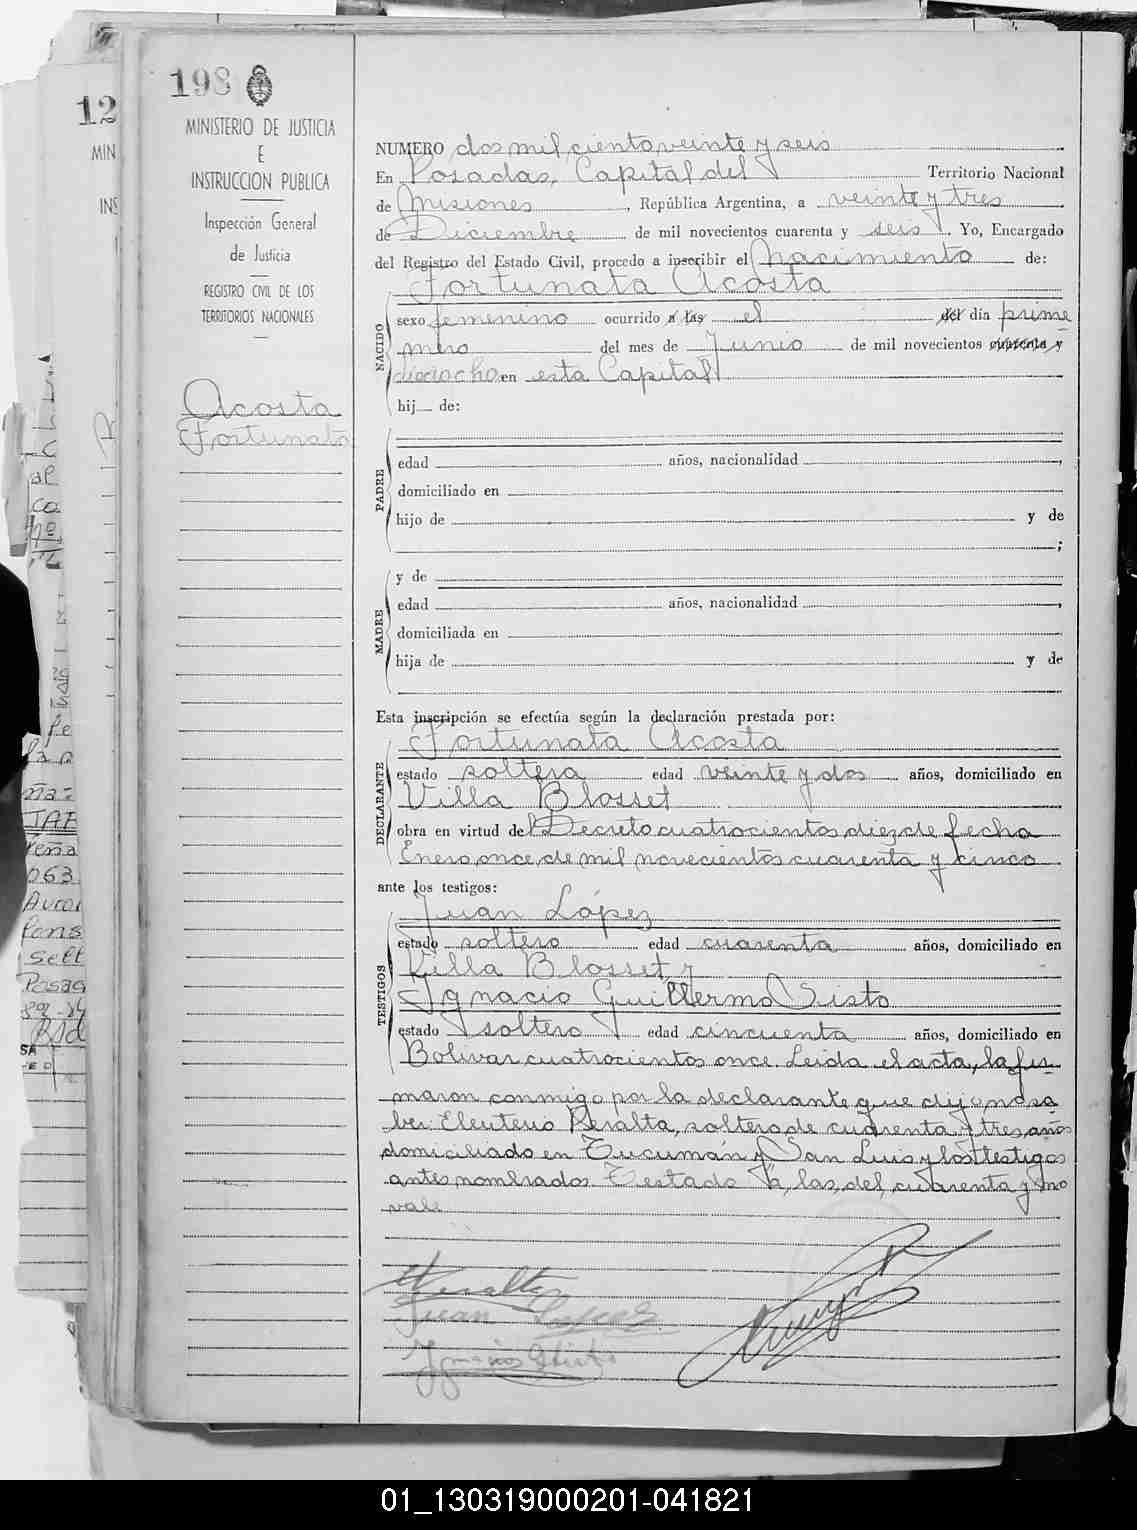 198
MINISTERIO DE JUSTICIA
E
INSTRUCCION PUBLICA
Inspección General
de Justicia
REGISTRO CIVIL DE LOS
TERRITORIOS NACIONALES
Acosta
Fortunata
12
MIN
INS
NUMERO dos mil ciento veinte y seis
En Posadas, Capital del Territorio Nacional
de Misiones, República Argentina, a veinte y tres
de Diciembre de mil novecientos cuarenta y seis. Yo, Encargado
del Registro del Estado Civil, procedo a inscribir el nacimiento de:
Fortunata Acosta
NACIDO
sexo femenino ocurrido a las el del día prime
mero del mes de Junio de mil novecientos cuarenta y
dieciocho en esta Capital
hij de:
PADRE
edad años, nacionalidad ,
domiciliado en
hijo de y de
;
MADRE
y de
edad años, nacionalidad ,
domiciliada en
hija de y de
Esta inscripción se efectúa según la declaración prestada por:
Fortunata Acosta
DECLARANTE
estado soltera edad veinte y dos años, domiciliado en
Villa Blosset
obra en virtud del Decreto cuatrocientos diez de fecha
Enero once de mil novecientos cuarenta y cinco
ante los testigos:
Juan López
TESTIGOS
estado soltero edad cuarenta años, domiciliado en
Villa Blosset y
Ignacio Guillermo Sisto
estado soltero edad cincuenta años, domiciliado en
Bolivar cuatrocientos once. Leida el acta, la fir
maron conmigo por la declarante que dijo no sa
ber: Eleuterio Peralta, soltero de cuarenta y tres años
domiciliado en Tucumán y San Luis y los testigos
antes nombrados. Testado "a, las, del, cuarenta y" no
vale
Peralta
Juan Lopez
Ignacio G Sisto
01_130319000201-041821